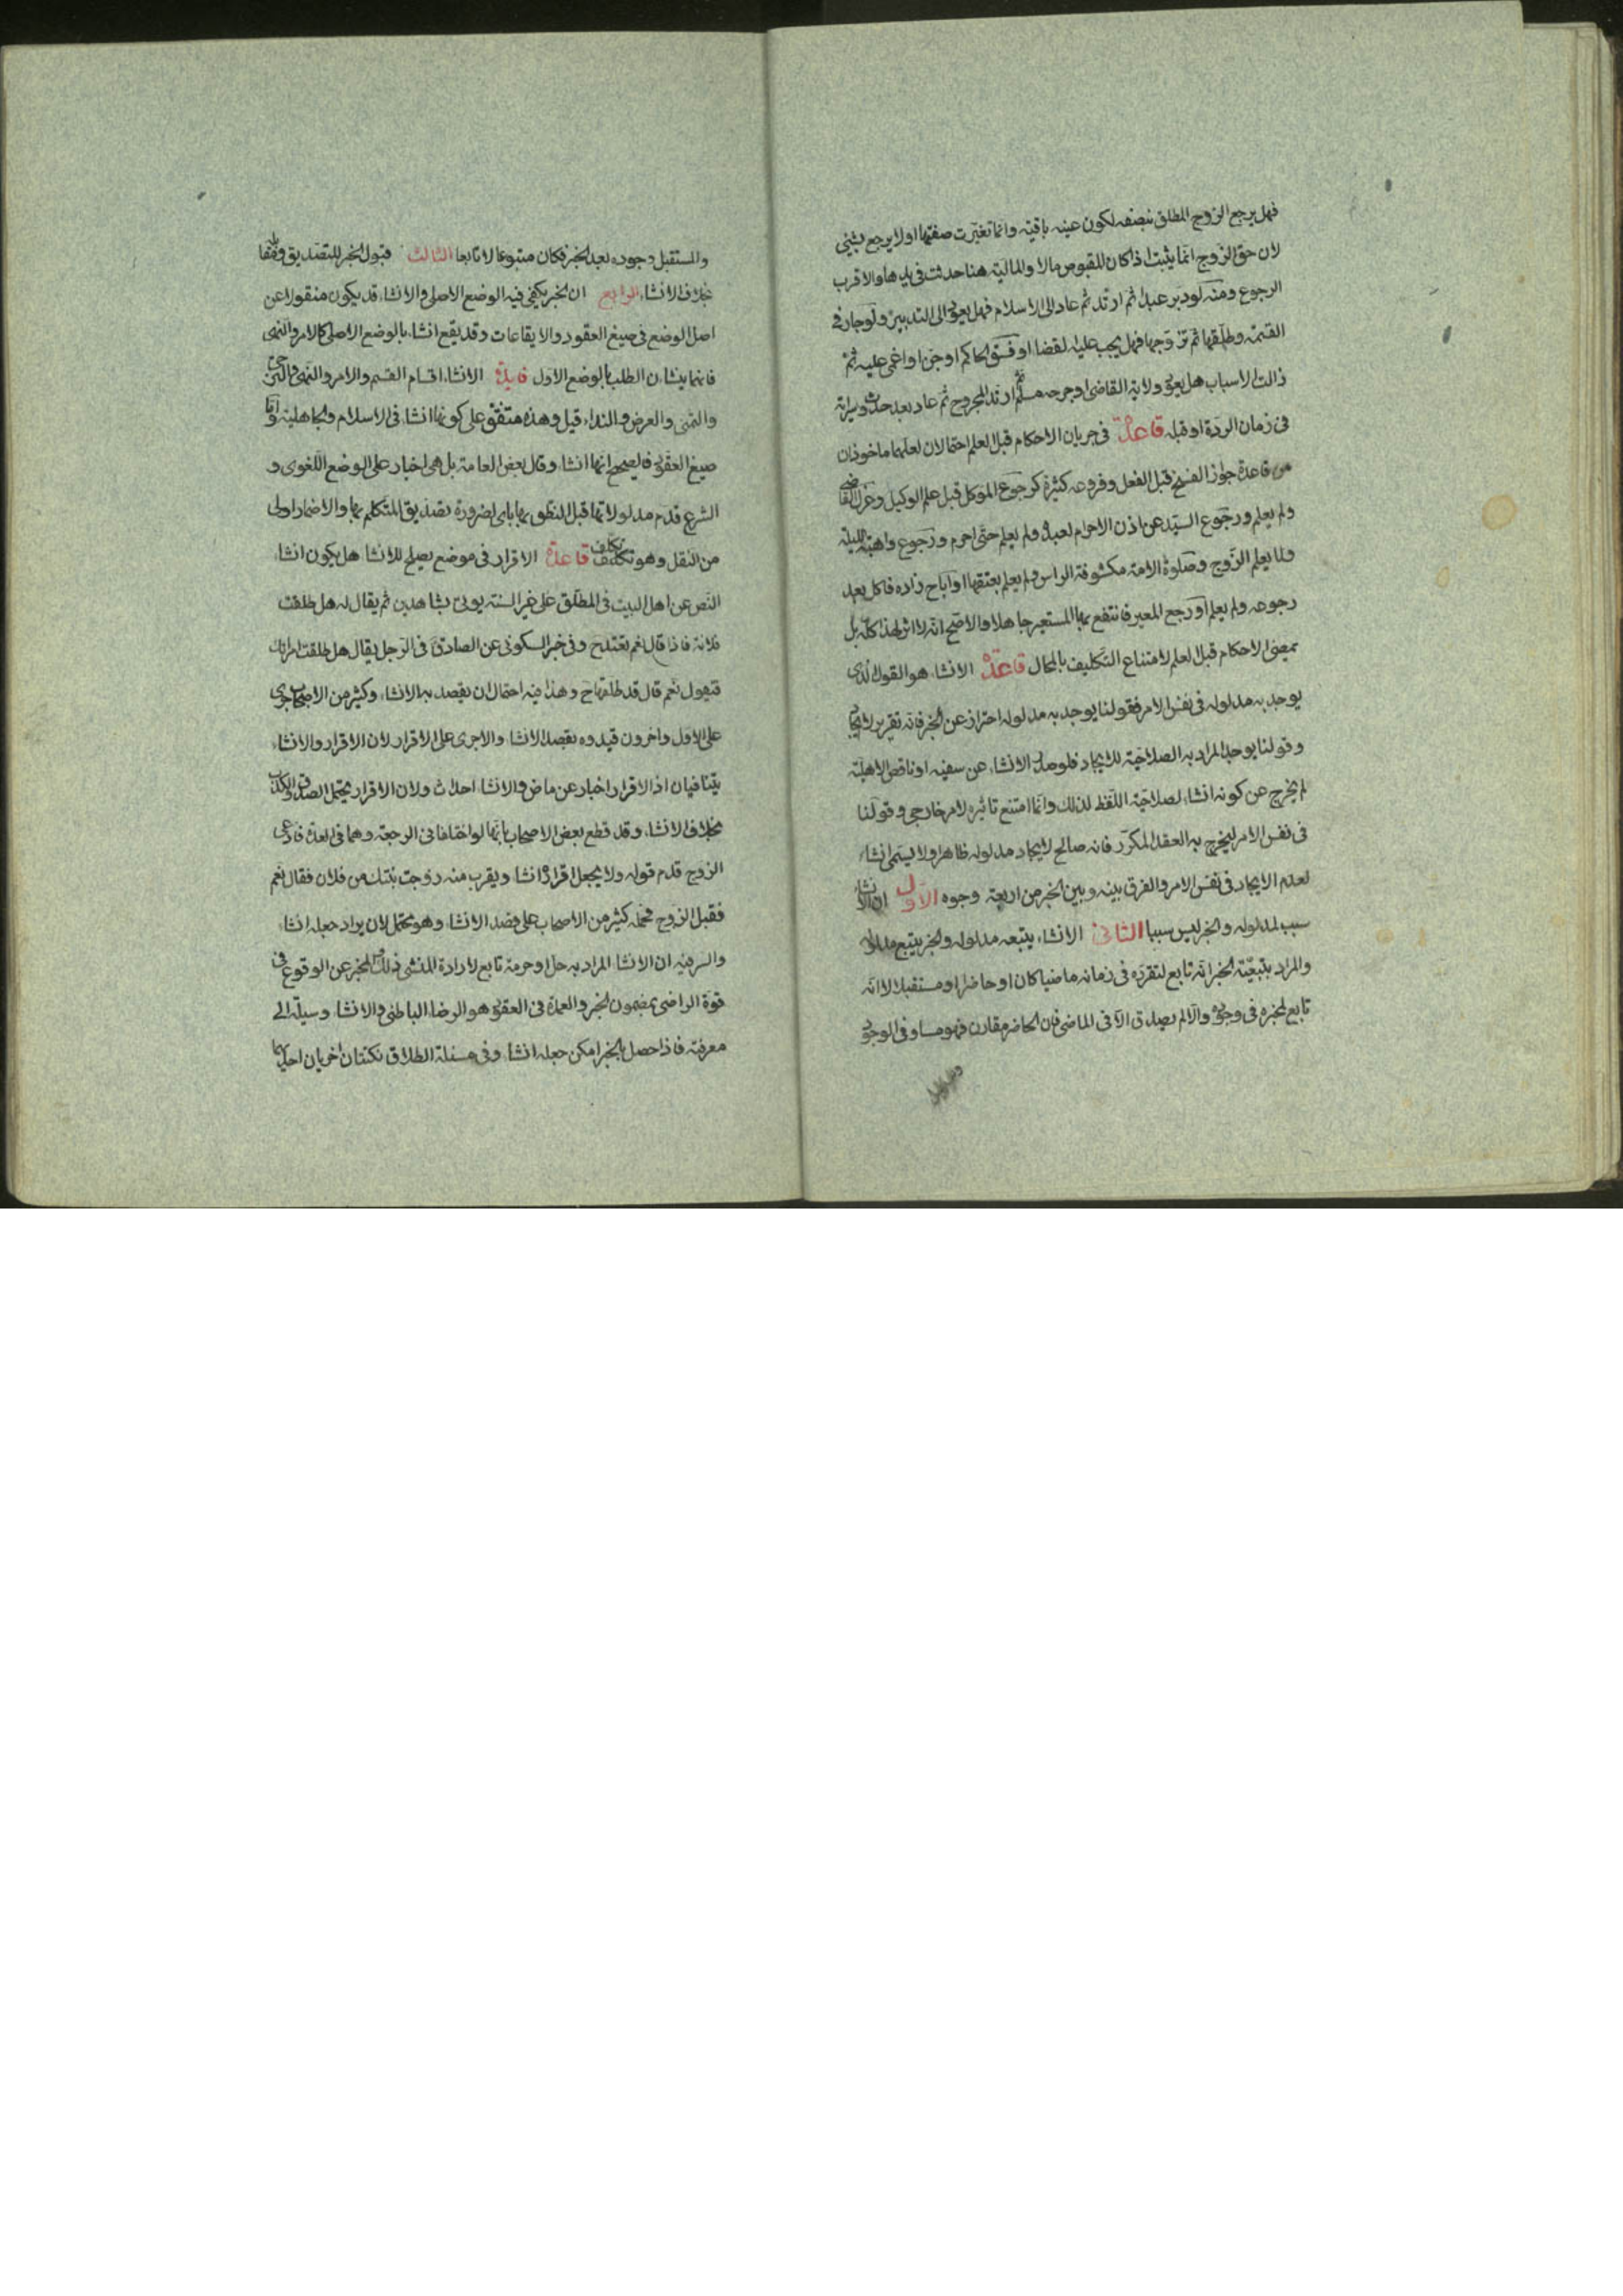 فهل يرجع الزوج المطلق بنصفه لكون عينه باقية وانما تغيرت صفتها اولا يرجع بشئ
لان حق الزوج انما يثبت اذا كان المقبوض مالا والمالية هنا حدثت فى يدها والاقرب
الرجوع ومنه لو دبر عبدا ثم ارتد ثم عاد الى الاسلام فهل يعود الى التدبير ولو جار فى
القسمة وطلقها ثم تزوجها فهل يجب عليه القضاء او فسق الحاكم او جن او اغمى عليه ثم
زالت الاسباب هل يعود ولاية القاضى او جرحه مسلم ثم ارتد المجروح ثم عاد بعد حدوث سراية
فى زمان الردة او قبله قاعدة فى جريان الاحكام قبل العلم احتمالان لعلهما ماخوذان
من قاعدة جواز الفسخ قبل الفعل وفروعه كثيرة كرجوع الموكل قبل علم الوكيل وعزل القاضى
ولم يعلم ورجوع السيد عن اذن الاحرام لعبده ولم يعلم حتى احرم ورجوع واهبة الليلة
ولما يعلم الزوج وصلوة الامة مكشوفة الراس ولم يعلم بعتقها او اباح زاده فاكل بعد
رجوعه ولم يعلم او رجع المعير فانتفع بها المستعير جاهلا والاصح انه لا اثر لهذا كله بل
يمضى الاحكام قبل العلم لامتناع التكليف بالمحال قاعدة الانشاء هو القول الذى
يوجد به مدلوله فى نفس الامر فقولنا يوجد به مدلوله احتراز عن الخبر فانه تقرير لا ايجاد
وقولنا يوجد المراد به الصلاحية للايجاد فلو صدر الانشاء عن سفيه او ناقص الاهلية
لم يخرج عن كونه انشاء لصلاحية اللفظ لذلك وانما امتنع تاثيره لامر خارجى وقولنا
فى نفس الامر ليخرج به العقد المكرر فانه صالح لايجاد مدلوله ظاهرا ولا يسمى انشاء
لعدم الايجاد فى نفس الامر والفرق بينه وبين الخبر من اربعة وجوه الاول ان الانشاء
سبب لمدلوله والخبر ليس سببا الثانى الانشاء يتبعه مدلوله والخبر يتبع مدلوله
والمراد بتبعية الخبر انه تابع لتقرره فى زمانه ماضيا كان او حاضرا او مستقبلا لا انه
تابع لمخبره فى وجوده والا لم يصدق الا فى الماضى فان الحاضر مقارن فهو مساو فى الوجود
والمستقبل
والمستقبل وجوده بعد الخبر فكان متبوعا لا تابعا الثالث قبول الخبر للتصديق ومقابله
بخلاف الانشاء الرابع ان الخبر يكفى فيه الوضع الاصلى والانشاء قد يكون منقولا عن
اصل الوضع فى صيغ العقود والايقاعات وقد يقع انشاء بالوضع الاصلى كالامر والنهى
فانهما ينشان الطلب بالوضع الاول فايدة الانشاء اقسام القسم والامر والنهى والترجى
والتمنى والعرض والنداء قيل وهذه متفق على كونها انشاء فى الاسلام والجاهلية واما
صيغ العقود فالصحيح انها انشاء وقال بعض العامة بل هى اخبار على الوضع اللغوى و
الشرع قدم مدلولاتها قبل النطق بها بان لضرورة تصديق المتكلم بها والاضمار اولى
من النقل وهو تكلف تكلف قاعدة الاقرار فى موضع يصلح للانشاء هل يكون انشاء
النص عن اهل البيت فى المطلق على غير السنة يوتى بشاهدين ثم يقال له هل طلقت
فلانة فاذا قال نعم تعتد ح وفى خبر السكونى عن الصادق ع فى الرجل يقال هل طلقت امراتك
فيقول نعم قال قد طلقها ح وهذا فيه احتمال ان يقصد به الانشاء وكثير من الاصحاب جرى
على الاول واخرون قيدوه بقصد الانشاء والاجرى على الاقرار لان الاقرار والانشاء
يتنافيان اذ الاقرار اخبار عن ماض والانشاء احداث ولان الاقرار يحتمل الصدق والكذب
بخلاف الانشاء وقد قطع بعض الاصحاب بانهما لو اختلفا فى الرجعة وهما فى العدة فادعى
الزوج قدم قوله ولا يجعل اقراره انشاء ويقرب منه زوجت بنتك من فلان فقال نعم
فقبل الزوج فحمله كثير من الاصحاب على قصد الانشاء وهو محتمل لان يراد جعله انشاء
والسر فيه ان الانشاء المراد به حل او حرمة تابع لارادة المنشى ذلك والمخبر عن الوقوع فى
قوة الراضى بمضمون الخبر والعمدة فى العقود هو الرضا الباطنى والانشاء وسيلة الى
معرفته فاذا حصل بالخبر امكن جعله انشاء وفى مسئلة الطلاق نكتتان اخريان احديهما